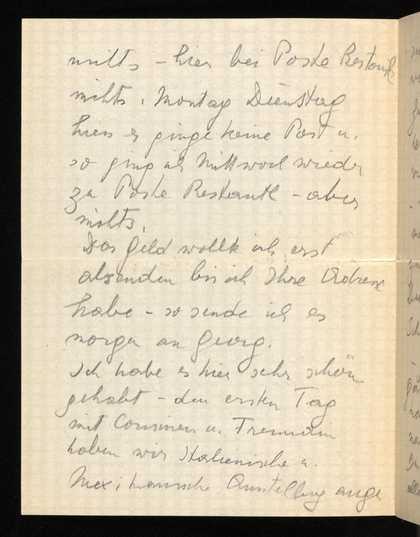 nichts – hier bei Poste Restante
nichts. Montag Dienstag
hiess es ginge keine Post u.
so ging ich Mittwoch wieder
zu Poste Restante – aber
nichts.
Das Geld wollte ich erst
absenden bis ich Ihre Adresse
habe – so sende ich es
morgen an Georg.
Ich habe es hier sehr schön
gehabt – den ersten Tag
mit Cousinen u. Freundin
haben wir Italienische u.
Mexikanische Ausstellung ange